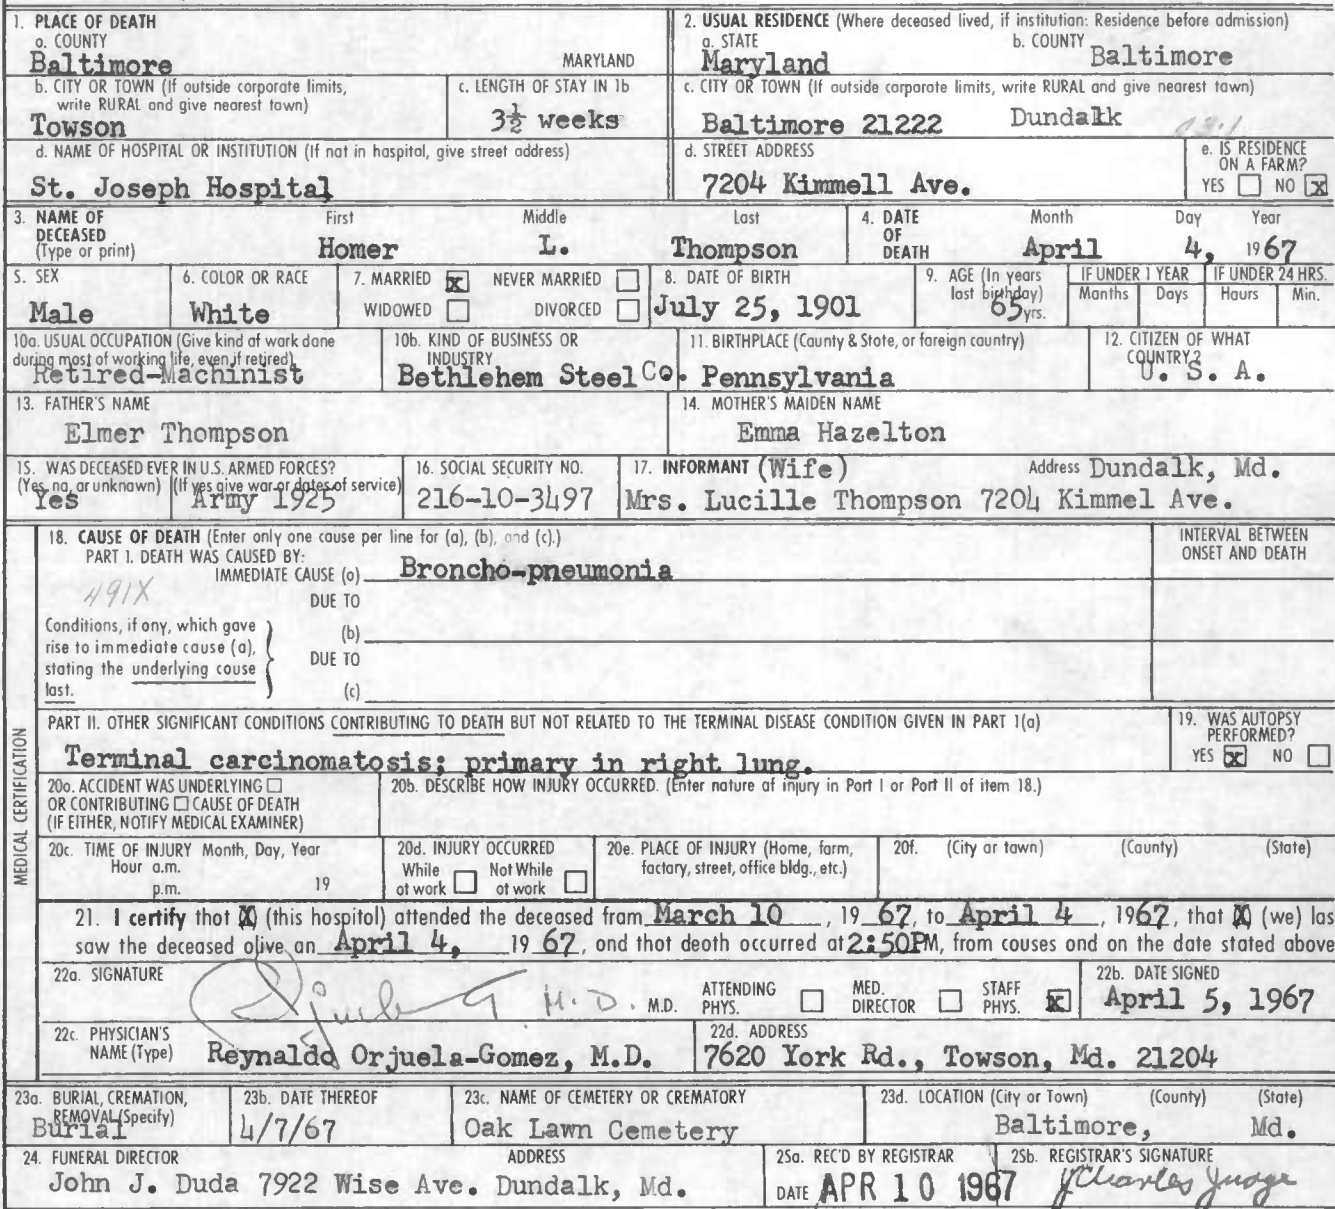 1. PLACE OF DEATH
a. COUNTY
Baltimore MARYLAND
2. USUAL RESIDENCE (Where deceased lived, if institution: Residence before admission)
a. STATE b. COUNTY
Maryland Baltimore
b. CITY OR TOWN (If outside corporate limits, write RURAL and give nearest town)
Towson
c. LENGTH OF STAY IN 1b
3½ weeks
c. CITY OR TOWN (If outside corporate limits, write RURAL and give nearest town)
Baltimore 21222 Dundalk
d. NAME OF HOSPITAL OR INSTITUTION (If not in hospital, give street address)
St. Joseph Hospital
d. STREET ADDRESS
7204 Kimmell Ave.
e. IS RESIDENCE
ON A FARM?
YES NO X
3. NAME OF
DECEASED
(Type or print)
First Middle Last
Homer L. Thompson
4. DATE
OF
DEATH
Month Day Year
April 4, 1967
5. SEX
Male
6. COLOR OR RACE
White
7. MARRIED X NEVER MARRIED
WIDOWED DIVORCED
8. DATE OF BIRTH
July 25, 1901
9. AGE (In years
last birthday)
65 yrs.
IF UNDER 1 YEAR
Months Days
IF UNDER 24 HRS.
Hours Min.
10a. USUAL OCCUPATION (Give kind of work done
during most of working life, even if retired)
Retired-Machinist
10b. KIND OF BUSINESS OR
INDUSTRY
Bethlehem Steel Co.
11. BIRTHPLACE (County & State, or foreign country)
Pennsylvania
12. CITIZEN OF WHAT
COUNTRY?
U. S. A.
13. FATHER'S NAME
Elmer Thompson
14. MOTHER'S MAIDEN NAME
Emma Hazelton
15. WAS DECEASED EVER IN U.S. ARMED FORCES?
(Yes, no, or unknown) (If yes give war or dates of service)
Yes Army 1925
16. SOCIAL SECURITY NO.
216-10-3497
17. INFORMANT (Wife) Address Dundalk, Md.
Mrs. Lucille Thompson 7204 Kimmel Ave.
MEDICAL CERTIFICATION
18. CAUSE OF DEATH (Enter only one cause per line for (a), (b), and (c).)
PART I. DEATH WAS CAUSED BY:
IMMEDIATE CAUSE (a) Broncho-pneumonia
INTERVAL BETWEEN
ONSET AND DEATH
491X
DUE TO
Conditions, if any, which gave
rise to immediate cause (a),
stating the underlying cause
last.
(b)
DUE TO
(c)
PART II. OTHER SIGNIFICANT CONDITIONS CONTRIBUTING TO DEATH BUT NOT RELATED TO THE TERMINAL DISEASE CONDITION GIVEN IN PART I(a)
Terminal carcinomatosis; primary in right lung.
19. WAS AUTOPSY
PERFORMED?
YES X NO
20a. ACCIDENT WAS UNDERLYING
OR CONTRIBUTING CAUSE OF DEATH
(IF EITHER, NOTIFY MEDICAL EXAMINER)
20b. DESCRIBE HOW INJURY OCCURRED. (Enter nature of injury in Part I or Part II of item 18.)
20c. TIME OF INJURY Month, Day, Year
Hour a.m.
p.m. 19
20d. INJURY OCCURRED
While at work Not While at work
20e. PLACE OF INJURY (Home, farm,
factory, street, office bldg., etc.)
20f. (City or town) (County) (State)
21. I certify that (this hospital) attended the deceased from March 10, 1967, to April 4, 1967, that (we) las
saw the deceased alive on April 4, 1967, and that death occurred at 2:50PM, from causes and on the date stated above
22a. SIGNATURE
M.D. M.D.
ATTENDING
PHYS.
MED.
DIRECTOR
STAFF
PHYS. X
22b. DATE SIGNED
April 5, 1967
22c. PHYSICIAN'S
NAME (Type)
Reynaldo Orjuela-Gomez, M.D.
22d. ADDRESS
7620 York Rd., Towson, Md. 21204
23a. BURIAL, CREMATION,
REMOVAL (Specify)
Burial
23b. DATE THEREOF
4/7/67
23c. NAME OF CEMETERY OR CREMATORY
Oak Lawn Cemetery
23d. LOCATION (City or Town) (County) (State)
Baltimore, Md.
24. FUNERAL DIRECTOR ADDRESS
John J. Duda 7922 Wise Ave. Dundalk, Md.
25a. REC'D BY REGISTRAR
DATE APR 10 1967
25b. REGISTRAR'S SIGNATURE
J Charles Judge